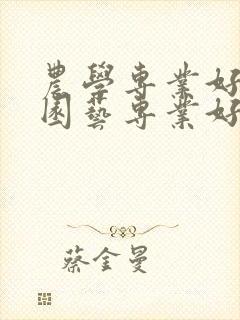 農學專業好
園藝專業好
蔡金曼